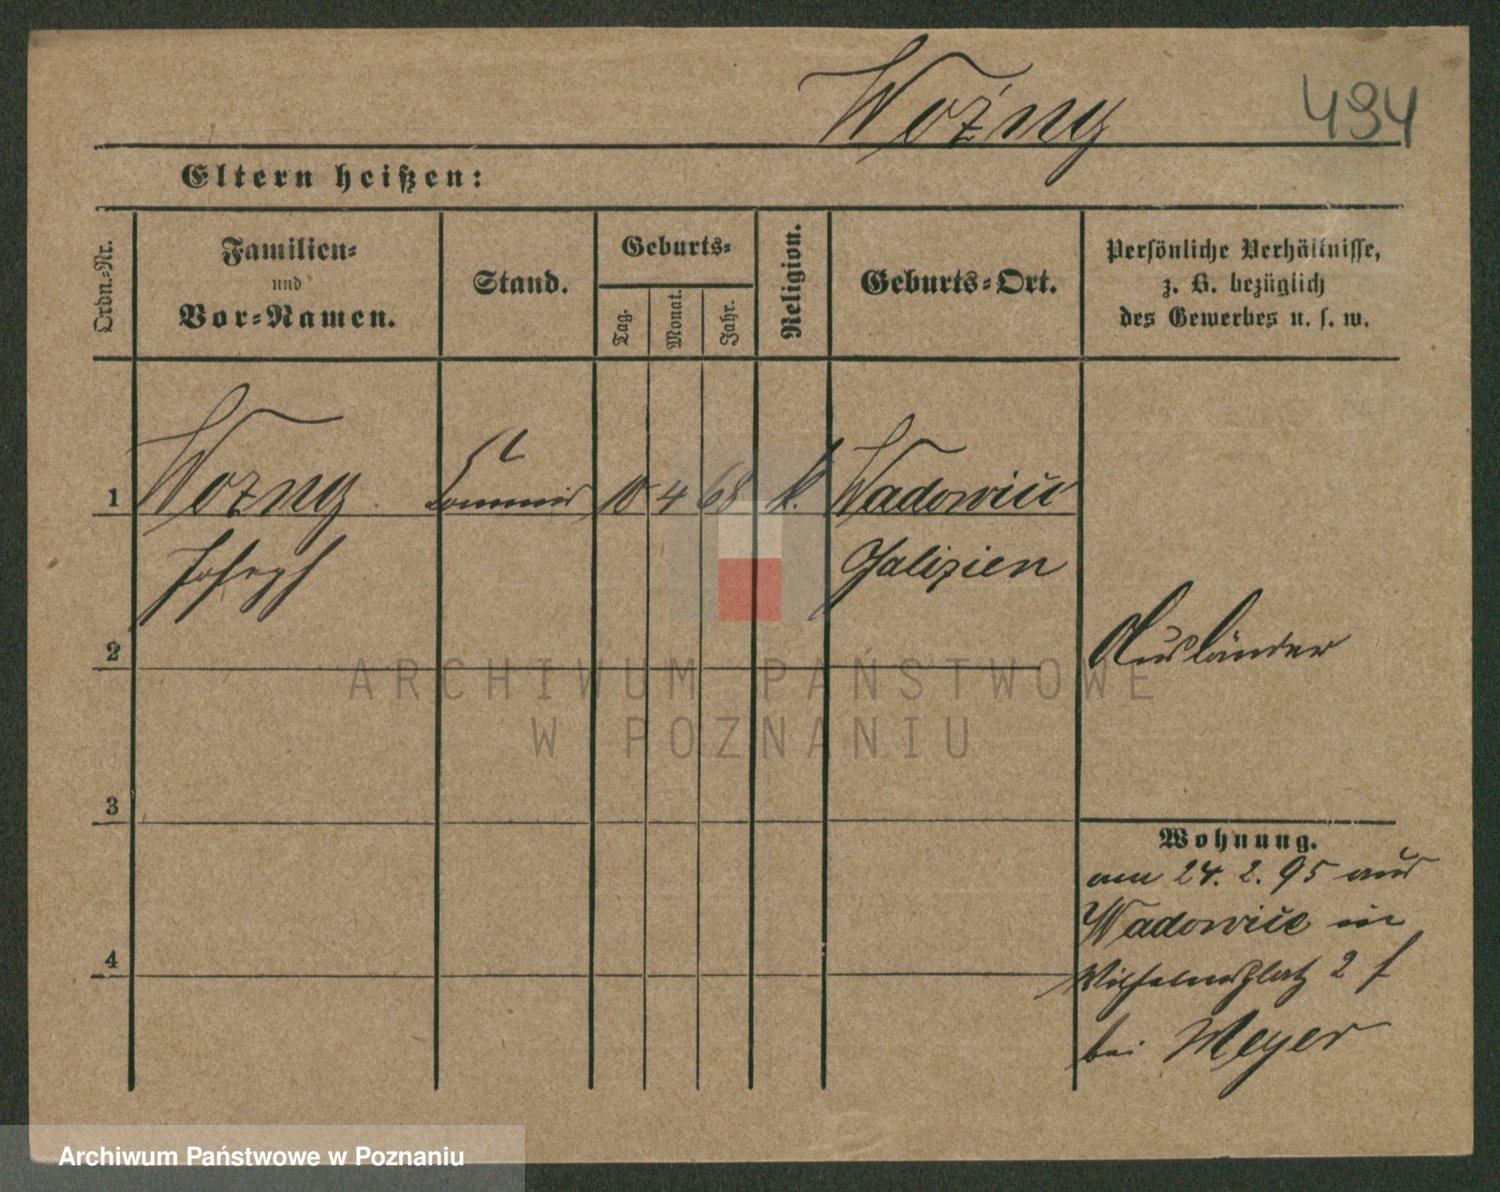 Woźny 494
Eltern heißen:
Ordn.=Nr. Familien= und Vor=Namen. Stand. Geburts= Tag. Monat. Jahr. Religion. Geburts=Ort. Persönliche Verhältnisse, z. B. bezüglich des Gewerbes u. s. w.
1 Wozny Commis 10 4 68 k. Wadowice
Joseph Galizien
2 Ausländer
3
Wohnung.
am 24. 2. 95 aus
Wadowice in
4 Wilhelmsplatz 2 f
bei Meyer
ARCHIWUM PAŃSTWOWE
W POZNANIU
Archiwum Państwowe w Poznaniu